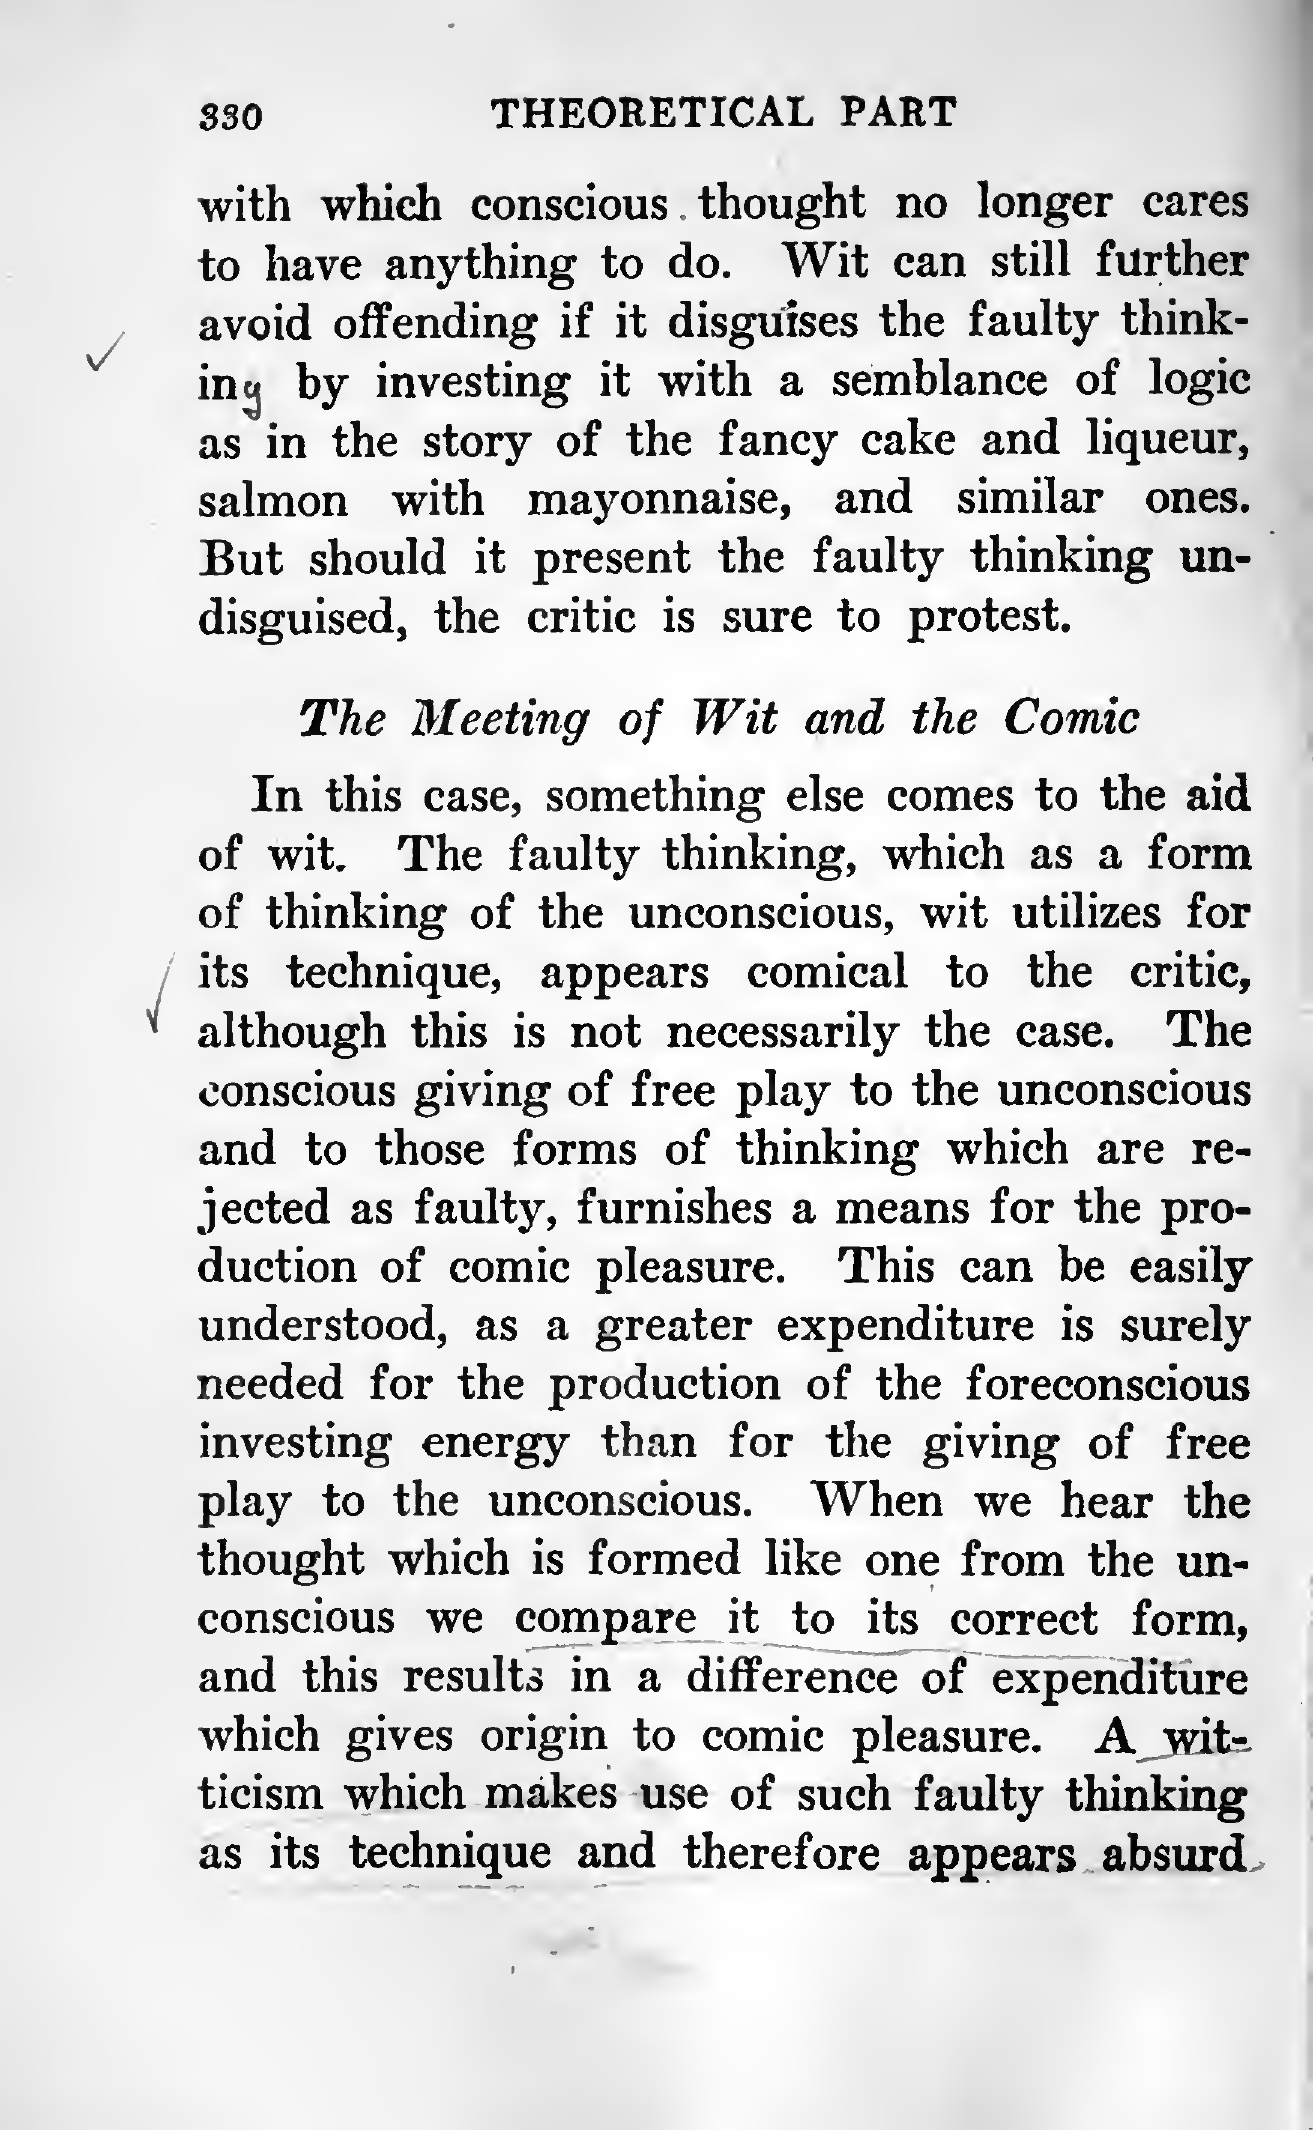 330 THEORETICAL PART
with which conscious thought no longer cares
to have anything to do. Wit can still further
avoid offending if it disguises the faulty think-
ing by investing it with a semblance of logic
as in the story of the fancy cake and liqueur,
salmon with mayonnaise, and similar ones.
But should it present the faulty thinking un-
disguised, the critic is sure to protest.
The Meeting of Wit and the Comic
In this case, something else comes to the aid
of wit. The faulty thinking, which as a form
of thinking of the unconscious, wit utilizes for
its technique, appears comical to the critic,
although this is not necessarily the case. The
conscious giving of free play to the unconscious
and to those forms of thinking which are re-
jected as faulty, furnishes a means for the pro-
duction of comic pleasure. This can be easily
understood, as a greater expenditure is surely
needed for the production of the foreconscious
investing energy than for the giving of free
play to the unconscious. When we hear the
thought which is formed like one from the un-
conscious we compare it to its correct form,
and this results in a difference of expenditure
which gives origin to comic pleasure. A wit-
ticism which makes use of such faulty thinking
as its technique and therefore appears absurd